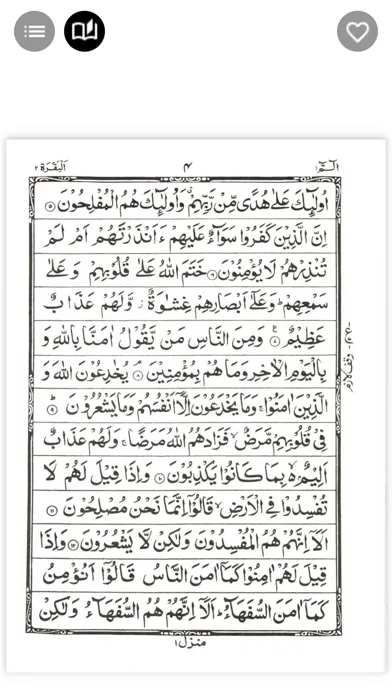 الٓمّٓ ۱ ۴ البقرۃ ۲
اُولٰٓئِكَ عَلٰی هُدًی مِّنْ رَّبِّهِمْ ۗ وَاُولٰٓئِكَ هُمُ الْمُفْلِحُوْنَ ۵
اِنَّ الَّذِیْنَ كَفَرُوْا سَوَآءٌ عَلَیْهِمْ ءَاَنْذَرْتَهُمْ اَمْ لَمْ
تُنْذِرْهُمْ لَا یُؤْمِنُوْنَ ۶ خَتَمَ اللّٰهُ عَلٰی قُلُوْبِهِمْ وَ عَلٰی
سَمْعِهِمْ ؕ وَعَلٰۤی اَبْصَارِهِمْ غِشَاوَةٌ ؗ وَّلَهُمْ عَذَابٌ
عَظِیْمٌ ۷ وَمِنَ النَّاسِ مَنْ یَّقُوْلُ اٰمَنَّا بِاللّٰهِ وَ
بِالْیَوْمِ الْاٰخِرِ وَمَا هُمْ بِمُؤْمِنِیْنَ ۘ ۸ یُخٰدِعُوْنَ اللّٰهَ وَ
الَّذِیْنَ اٰمَنُوْا ۚ وَمَا یَخْدَعُوْنَ اِلَّاۤ اَنْفُسَهُمْ وَمَا یَشْعُرُوْنَ ۹
فِیْ قُلُوْبِهِمْ مَّرَضٌ ۙ فَزَادَهُمُ اللّٰهُ مَرَضًا ۚ وَلَهُمْ عَذَابٌ
اَلِیْمٌۢ ۙ۬ بِمَا كَانُوْا یَكْذِبُوْنَ ۱۰ وَاِذَا قِیْلَ لَهُمْ لَا
تُفْسِدُوْا فِی الْاَرْضِ ۙ قَالُوْۤا اِنَّمَا نَحْنُ مُصْلِحُوْنَ ۱۱
اَلَاۤ اِنَّهُمْ هُمُ الْمُفْسِدُوْنَ وَلٰكِنْ لَّا یَشْعُرُوْنَ ۱۲ وَاِذَا
قِیْلَ لَهُمْ اٰمِنُوْا كَمَاۤ اٰمَنَ النَّاسُ قَالُوْۤا اَنُؤْمِنُ
كَمَاۤ اٰمَنَ السُّفَهَآءُ ؕ اَلَاۤ اِنَّهُمْ هُمُ السُّفَهَآءُ وَلٰكِنْ
منزل ۱
وقف لازم